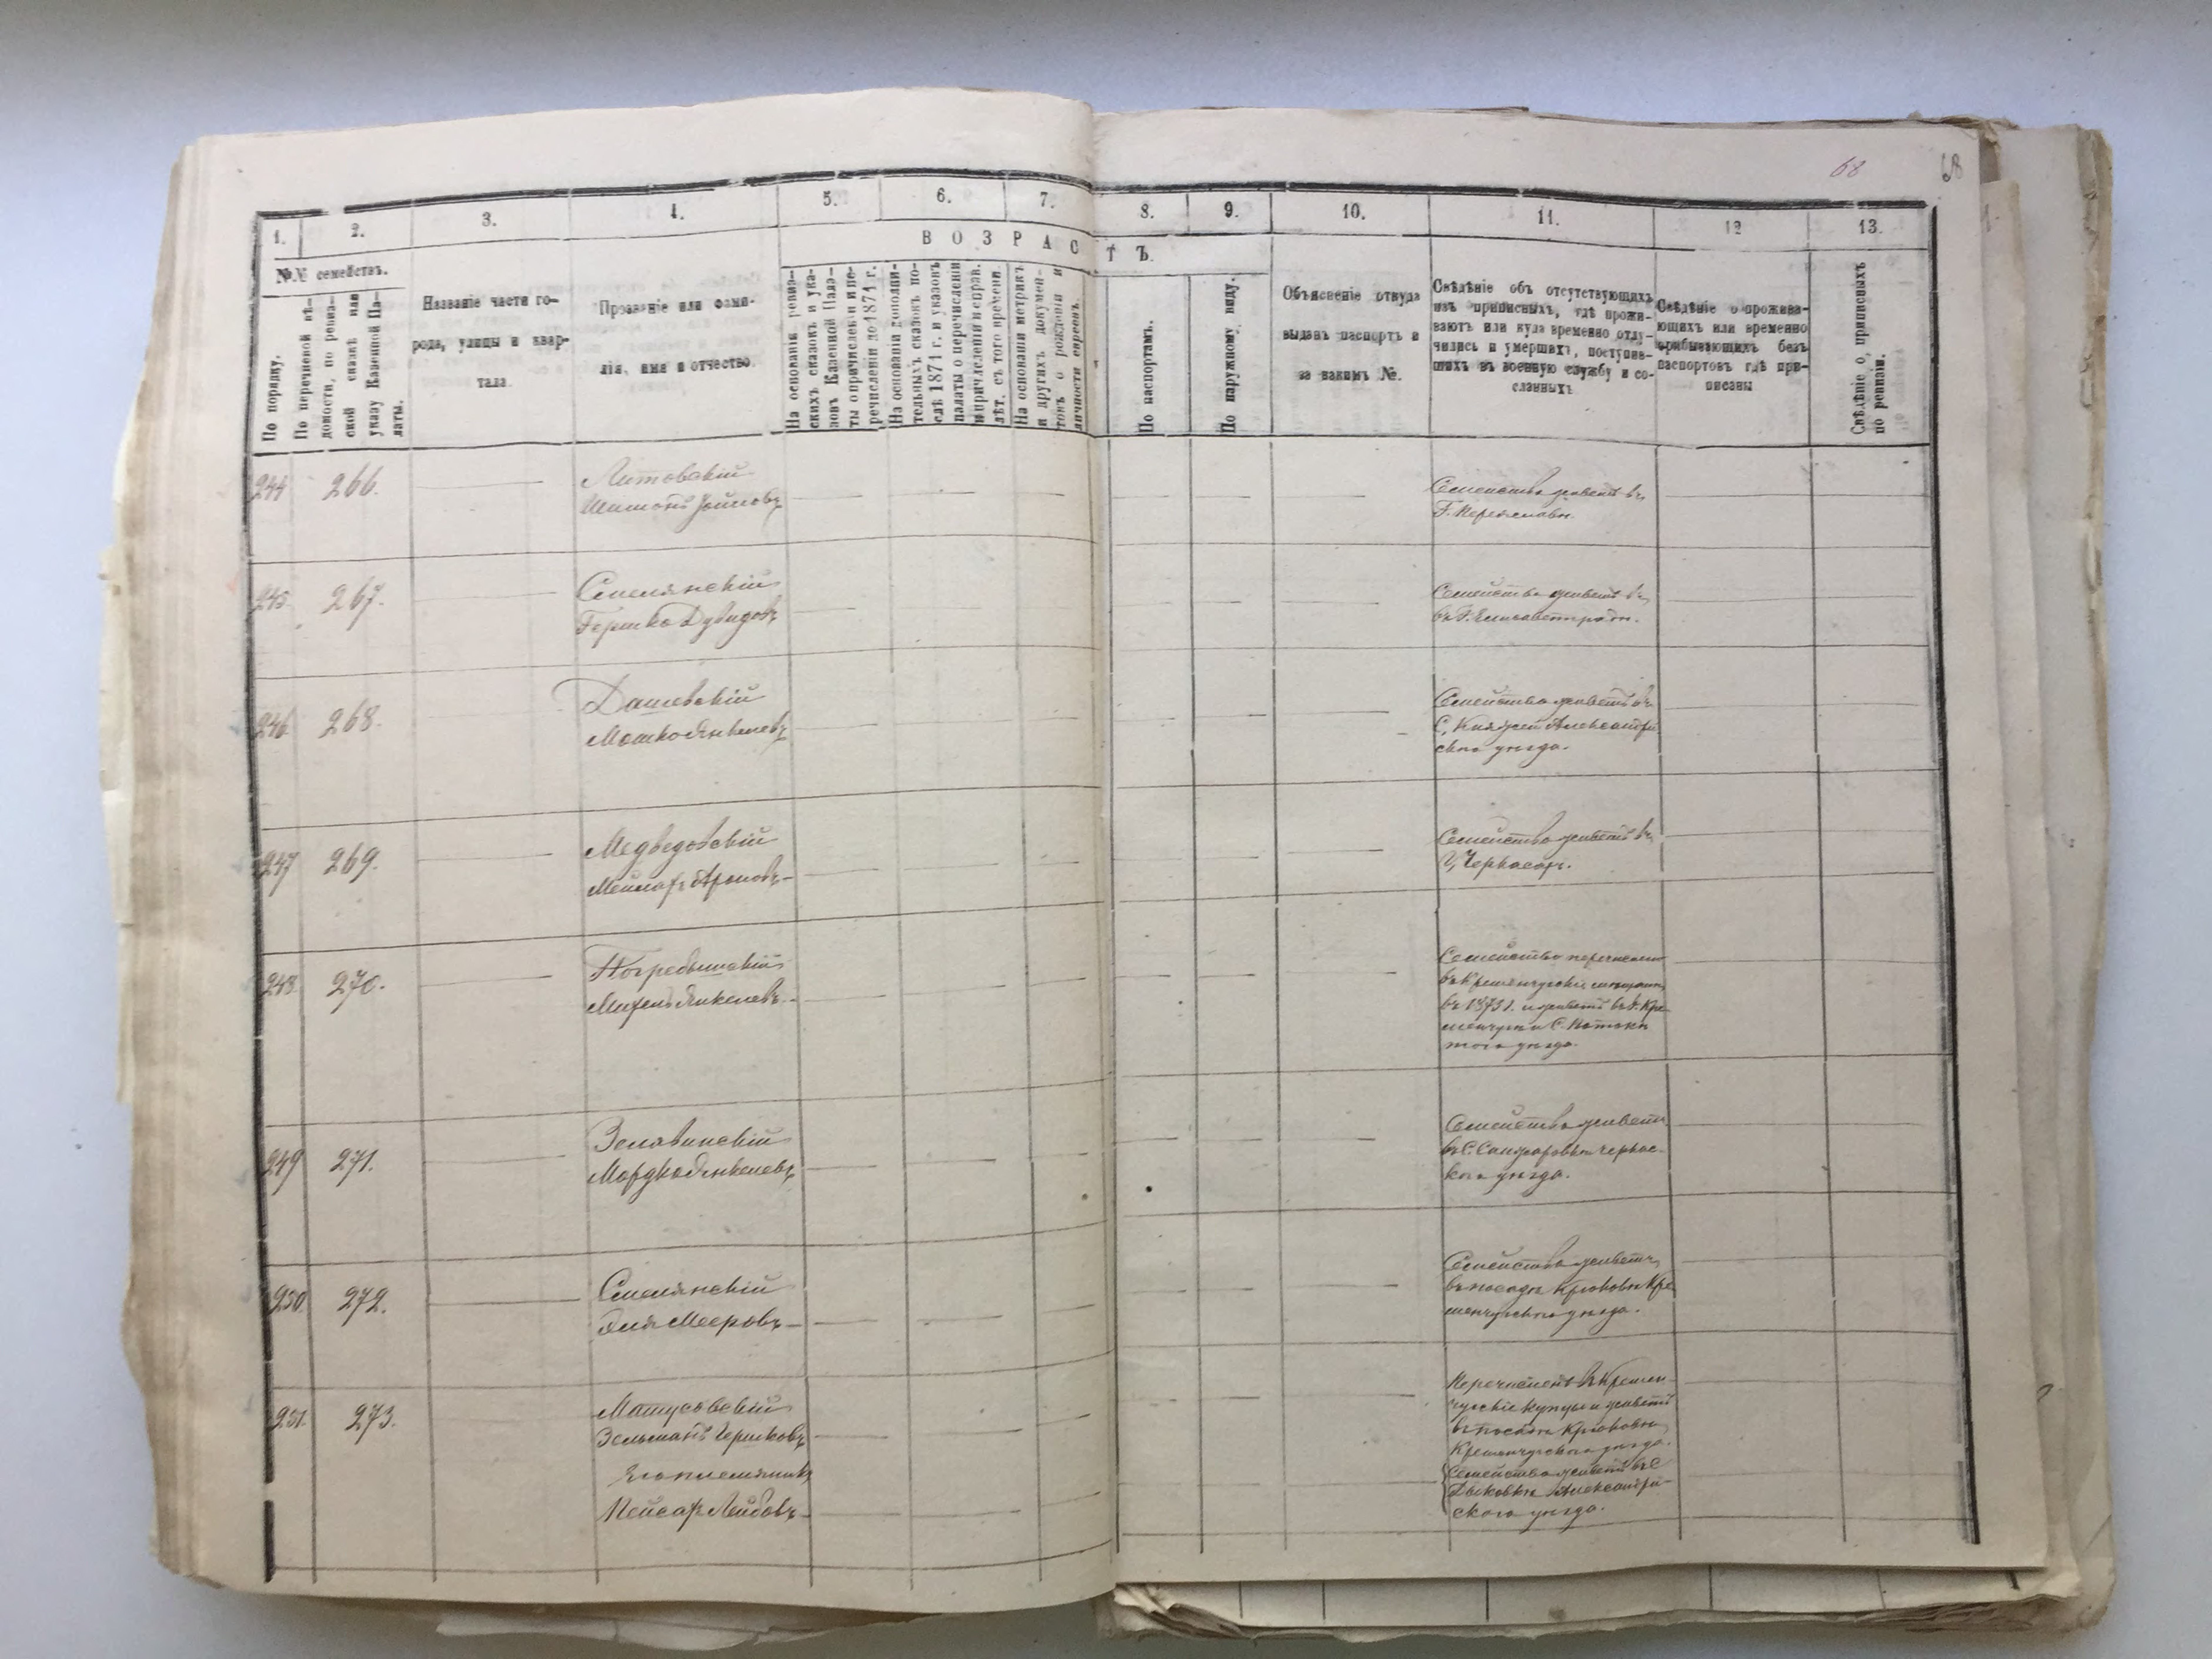 68 68
1. 2. 3. 4. 5. 6. 7. 8. 9. 10. 11. 12 13.
ВОЗРАСТЪ.
№№ семействъ.
По порядку.
По перечневой вѣ-
домости, по ревиз-
ской сказкѣ или
указу Казенной Па-
латы.
Названіе части го-
рода, улицы и квар-
тала.
Прозваніе или фами-
лія, имя и отчество.
На основаніи ревиз-
скихъ сказокъ и ука-
зовъ Казенной Пала-
ты о причислен. и пе-
речисленіи до 1871 г.
На основаніи дополни-
тельныхъ сказокъ по-
слѣ 1871 г. и указовъ
палаты о перечисленіи
и причисленіи и справ.
лѣт. съ того времени.
На основаніи метрикъ
и другихъ докумен-
товъ о рожденіи и
личности евреевъ.
По паспортамъ.
По наружному виду.
Объясненіе откуда
выданъ паспортъ и
за какимъ №.
Свѣдѣніе объ отсутствующихъ
изъ приписныхъ, гдѣ прожи-
ваютъ или куда временно отлу-
чились и умершихъ, поступив-
шихъ въ военную службу и со-
сланныхъ
Свѣдѣніе о прожива-
ющихъ или временно
прибывающихъ безъ
паспортовъ гдѣ при-
писаны
Свѣдѣніе о приписныхъ
по ревизіи.
244 266. Литовскій
Шимонъ
Семейство живетъ въ
Г. Переяславѣ.
245 267. Смелянскій
Гершко Дувидовъ
Семейство живетъ въ
въ Г. Елисаветградѣ.
246 268. Дашевскій
Мошко Янкелевъ
Семейство живетъ въ
С. Александрій
скаго уѣзда.
247 269. Медведовскій
Ароновъ
Семейство живетъ въ
Г. Черкасах.
248. 270. Погребышскій
Михель Янкелевъ
Семейство перечислено
въ Кременчугскіе
въ 1873 г. и живетъ въ Г. Кре
менчугѣ и С. Потоки
того уѣзда.
249 271. Зелавинскій
Мордко Янкелевъ
Семейство живетъ
въ С. Черкас-
каго уѣзда.
250 272. Смелянскій
Эля Мееровъ
Семейство живетъ
въ посадѣ Крюковѣ Кре
менчугскаго уѣзда.
251. 273. Матусовскій
Зельманъ Гершковъ
Перечисленъ въ Кремен-
чугскіе купцы и живетъ
въ посадѣ Крюковѣ
Кременчугскаго уѣзда.
Его племянникъ
Пейсах Лейбовъ
Семейство живетъ въ С
Александрій-
скаго уѣзда.